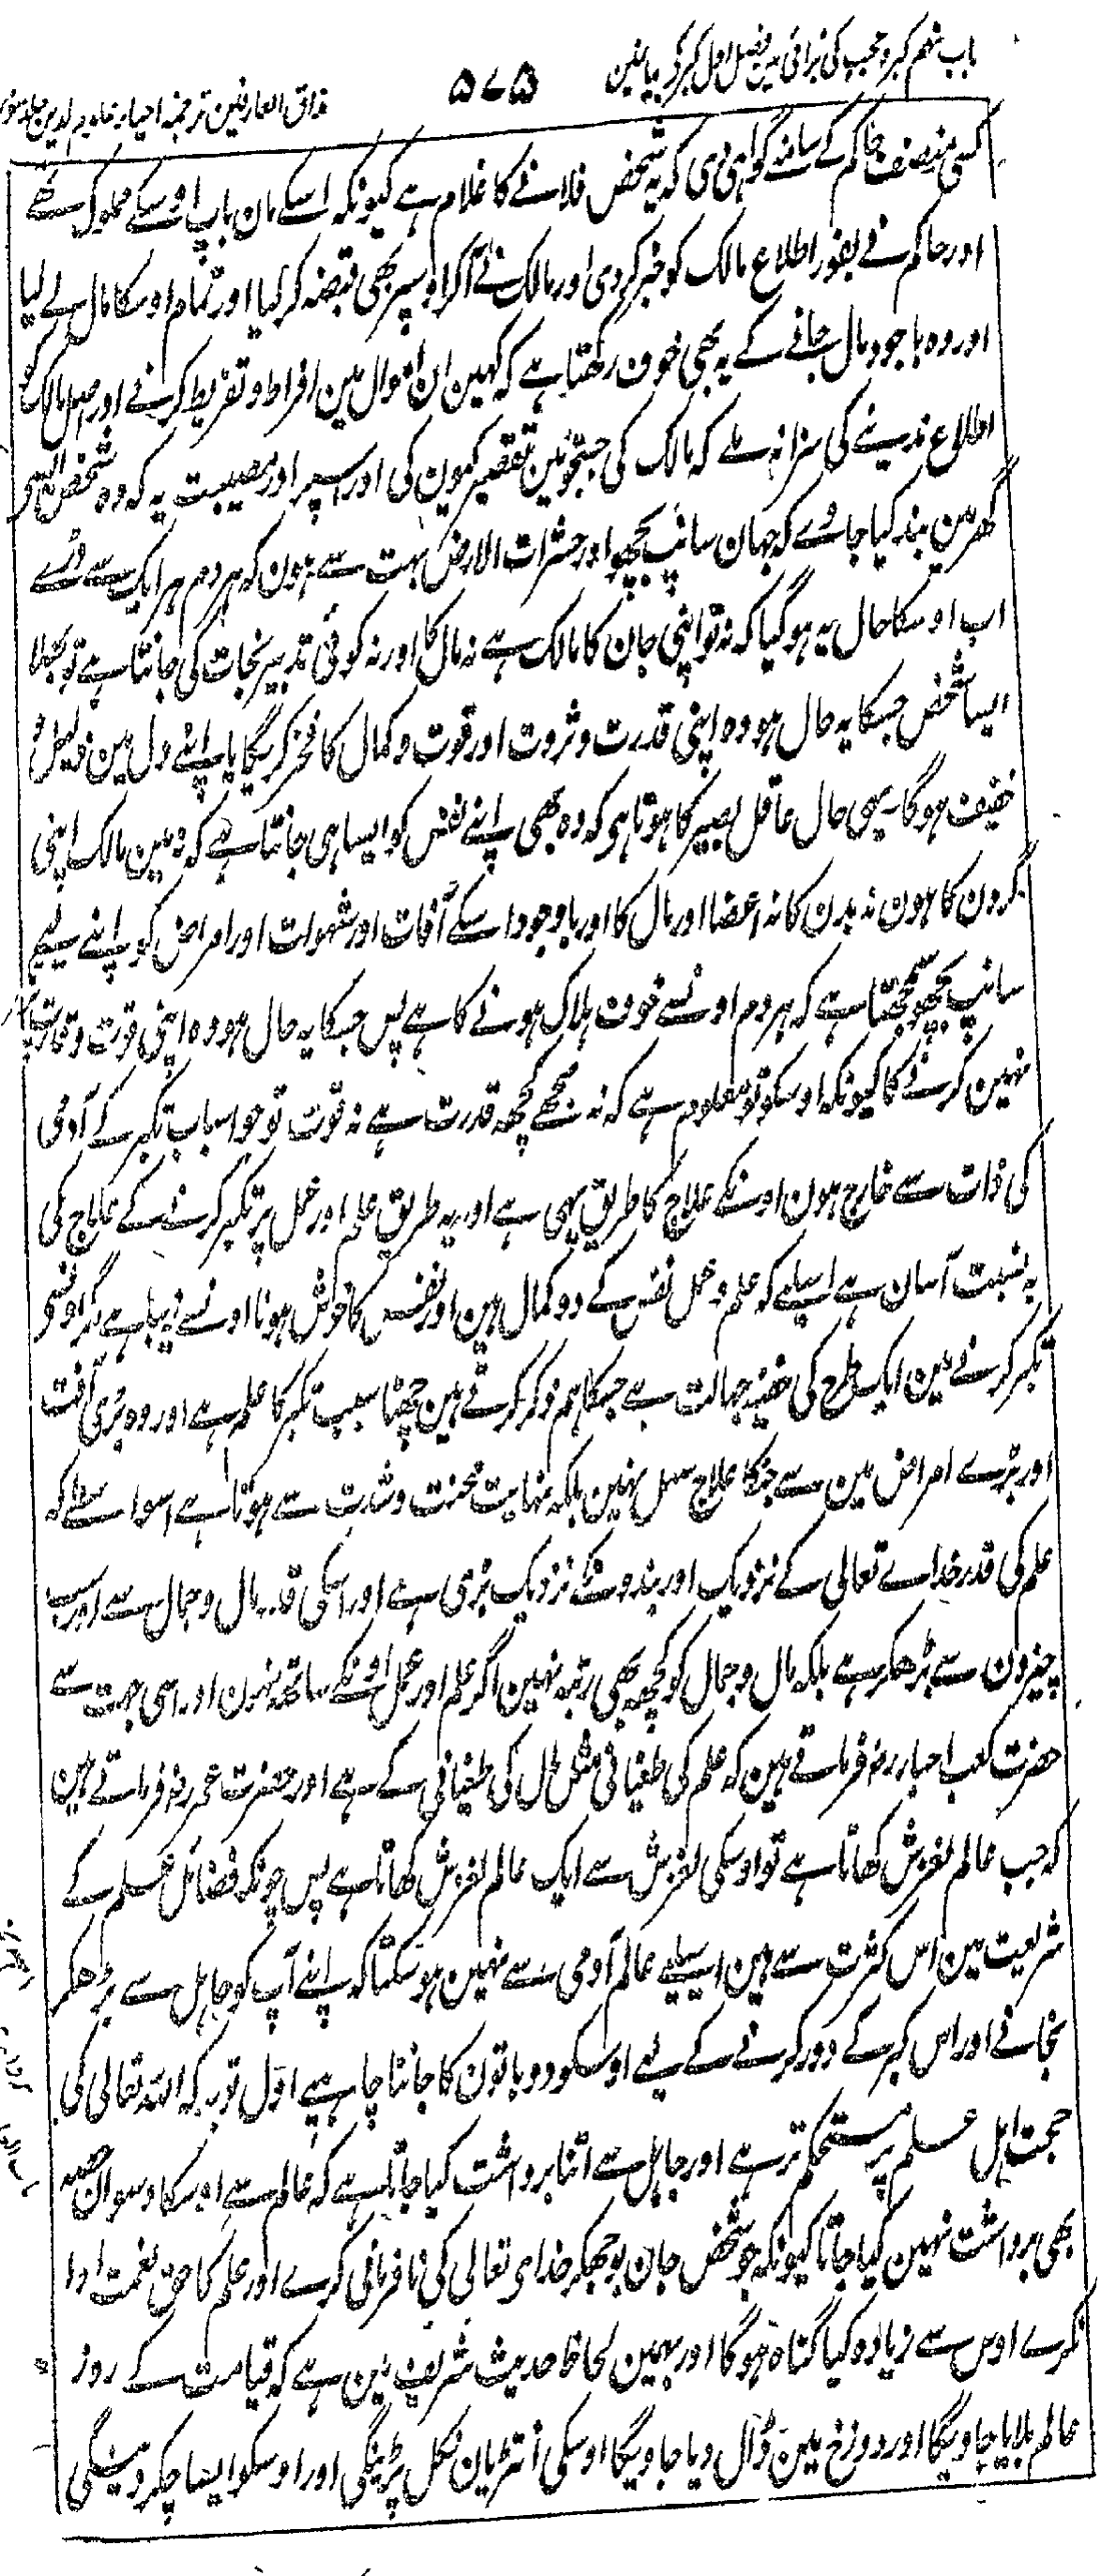 باب نہم کبر و عجب کی برائی میں فصل اول کبر کے بیان مین
۵۷۵
مذاق العارفین ترجمہ احیاء علوم الدین جلد سوم
کسی منصف حاکم کے سامنے گواہی دی کہ یہ شخص فلانے کا غلام ہے کیونکہ اسکے مان باپ اوسکے مملوک تھے
اور حاکم نے بفور اطلاع مالک کو خبر کر دی اور مالک نے آکر اوسپر بھی قبضہ کر لیا اور تمام اوسکا مال لے لیا
اور وہ باوجود مال جانے کے یہ بھی خوف رکھتا ہے کہ کہین ان اموال مین افراط و تفریط کرنے اور اصل مالک کو
اطلاع ندینے کی سزا نہ ملے کہ مالک کی جستجو مین تقصیر کیون کی اور اسپر اور مصیبت یہ کہ وہ شخص ایسی
گھر مین بند کیا جاوے کہ جہان سانپ بچھو اور حشرات الارض بہت سے ہون کہ ہر دم ہر ایک سے ڈرے
اب اوسکا حال یہ ہوگیا کہ نہ تو اپنی جان کا مالک ہے نہ مال کا اور نہ کوئی تدبیر نجات کی جانتا ہے تو بھلا
ایسا شخص جسکا یہ حال ہو وہ اپنی قدرت و ثروت اور قوت و کمال کا فخر کریگا یا اپنے دل مین ذلیل و
خفیف ہوگا۔ یہی حال عاقل بصیر کا ہوتا ہی کہ وہ بھی اپنے نفس کو ایسا ہی جانتا ہے کہ نہ مین مالک اپنی
گردن کا ہون نہ بدن کا نہ اعضا اور مال کا اور باوجود اسکے آفات اور شہوات اور امراض کو اپنے لیے
سانپ بچھو سمجھتا ہے کہ ہر دم اونسے خوف ہلاک ہونے کا ہے پس جسکا یہ حال ہو وہ اپنی قوت و قدرت پر تکبر
نہین کرنے کا کیونکہ اوسکو تو معلوم ہے کہ نہ مجھے کچھ قدرت ہے نہ قوت تو جو اسباب تکبر کے آدمی
کی ذات سے خارج ہون اونکے علاج کا طریق یہی ہے اور یہ طریق علم اور عمل پر تکبر کرنے کے علاج کی
بہ نسبت آسان ہے اسلیے کہ علم و عمل نفس کے دو کمال ہین اور نفس کا خوش ہونا اونسے زیبا ہے مگر اونسی
تکبر کرنے مین ایک طرح کی خفیہ جہالت ہے جسکا ہم ذکر کرتے ہین چھٹا سبب تکبر کا علم ہے اور وہ بڑی آفت
اور بڑے امراض مین سے جنکا علاج سہل نہین بلکہ نہایت محنت و شدت سے ہوتا ہے اسواسطے کہ
علم کی قدر خداے تعالی کے نزدیک اور بندونکے نزدیک بڑی ہے اور اسکی قدر مال و جمال سے اور سب
چیزون سے بڑھکر ہے بلکہ مال و جمال کو کچھ بھی رتبہ نہین اگر علم اور عمل اونکے ساتھ نہون اور اسی جہت سے
حضرت کعب احبار رضہ فرماتے ہین کہ علم کی طغیانی مثل مال کی طغیانی کے ہے اور حضرت عمر رضہ فرماتے ہین
کہ جب عالم لغزش کھاتا ہے تو اوسکی لغزش سے ایک عالم لغزش کھاتا ہے پس چونکہ فضائل علم کے
شریعت مین اس کثرت سے ہین اسلیے عالم آدمی سے نہین ہو سکتا کہ اپنے آپ کو جاہل سے بڑھکر
نجانے اور اس کبر کے دور کرنے کے لیے اوسکو دو باتون کا جاننا چاہیے اول تو یہ کہ اللہ تعالی کی
حجت اہل علم پر مستحکم تر ہے اور جاہل سے اتنا برداشت کیا جاتا ہے کہ عالم سے اوسکا دسوان حصہ
بھی برداشت نہین کیا جاتا کیونکہ جو شخص جان بوجھکر خداى تعالی کی نافرمانی کرے اور علم کا حق نعمت ادا
نکرے اوس سے زیادہ کیا گناہ ہوگا اور بہمین لحاظ حدیث شریف مین ہے کہ قیامت کے روز
عالم بلایا جاویگا اور دوزخ مین ڈال دیا جاویگا اوسکی انتڑیان نکل پڑینگی اور اوسکو ایسا چکر دینگی